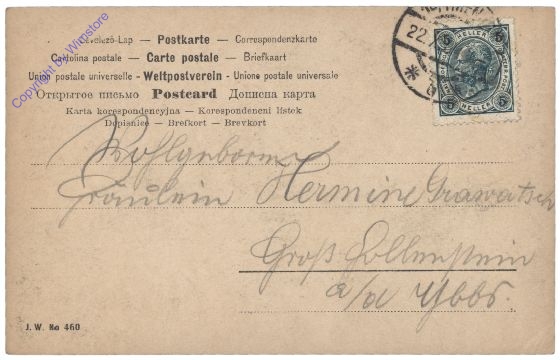 Levelező-Lap — Postkarte — Correspondenzkarte
Cartolina postale — Carte postale — Briefkaart
Union postale universelle — Weltpostverein — Unione postale universale
Открытое письмо Postcard Дописна карта
Karta korespondencyjna — Korespondeneni lístek
Dopisnice — Brefkort — Brevkort
Copyright by Wimstore
22.
5 HELLER 5
5 HELLER 5
Wohlgeborne
Fräulein Hermine Grawatsch
Groß Hollenstein
a/d Ybbs.
J. W. No 460